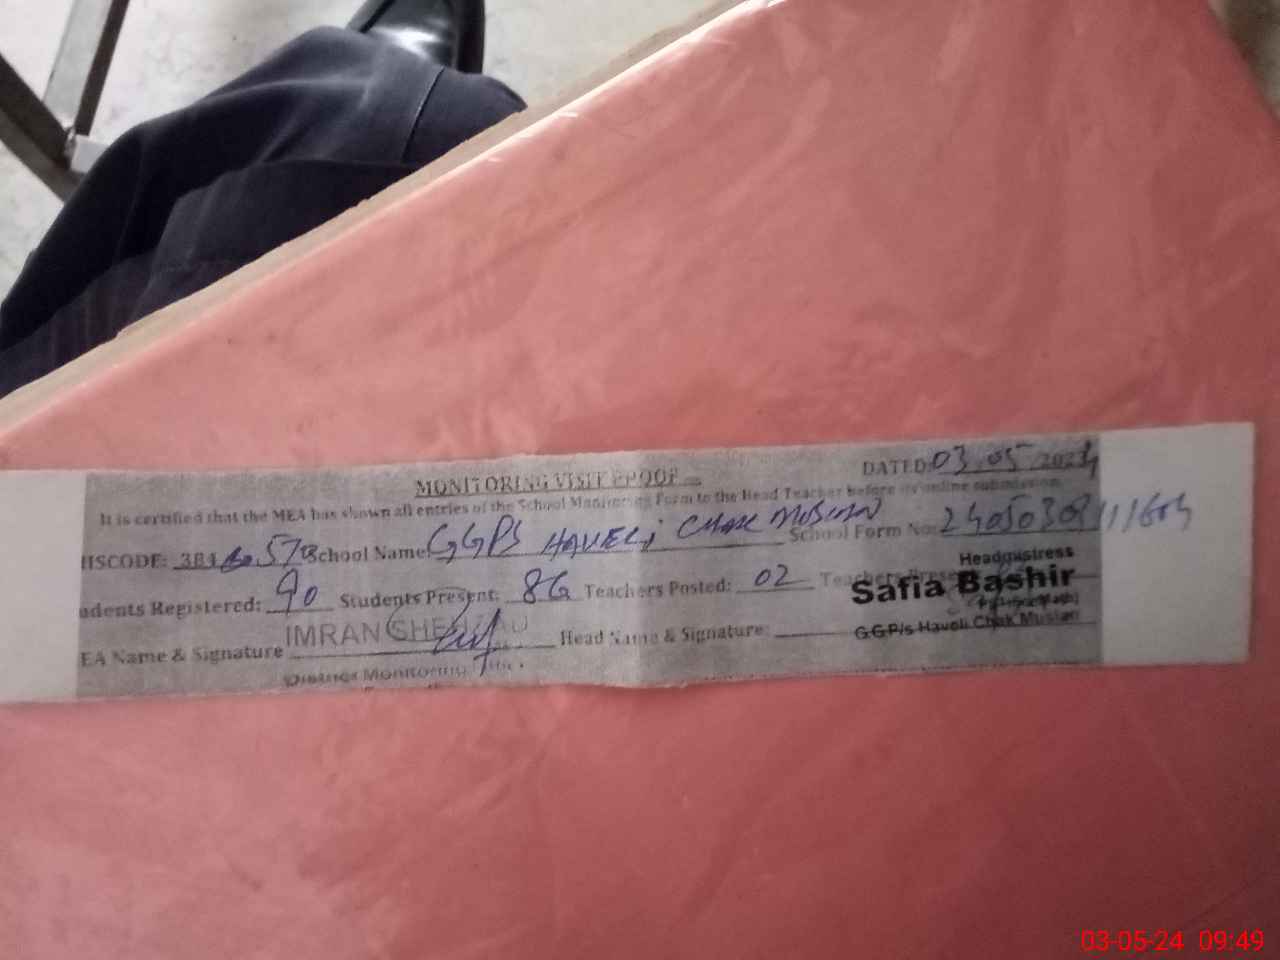 MONITORING VISIT PROOF
DATED: 03.05/2024
It is certified that the MEA has shown all entries of the School Monitoring Form to the Head Teacher before its online submission.
School Name: GGPS HAVELi CHAK School Form No:
Students Registered: 90 Students Present: 86 Teachers Posted: 02
Headmistress
Safia Bashir
G.G.P/s Haveli Chak
EA Name & Signature IMRAN SHEHZAD Head Name & Signature:
District Monitoring
03-05-24 09:49